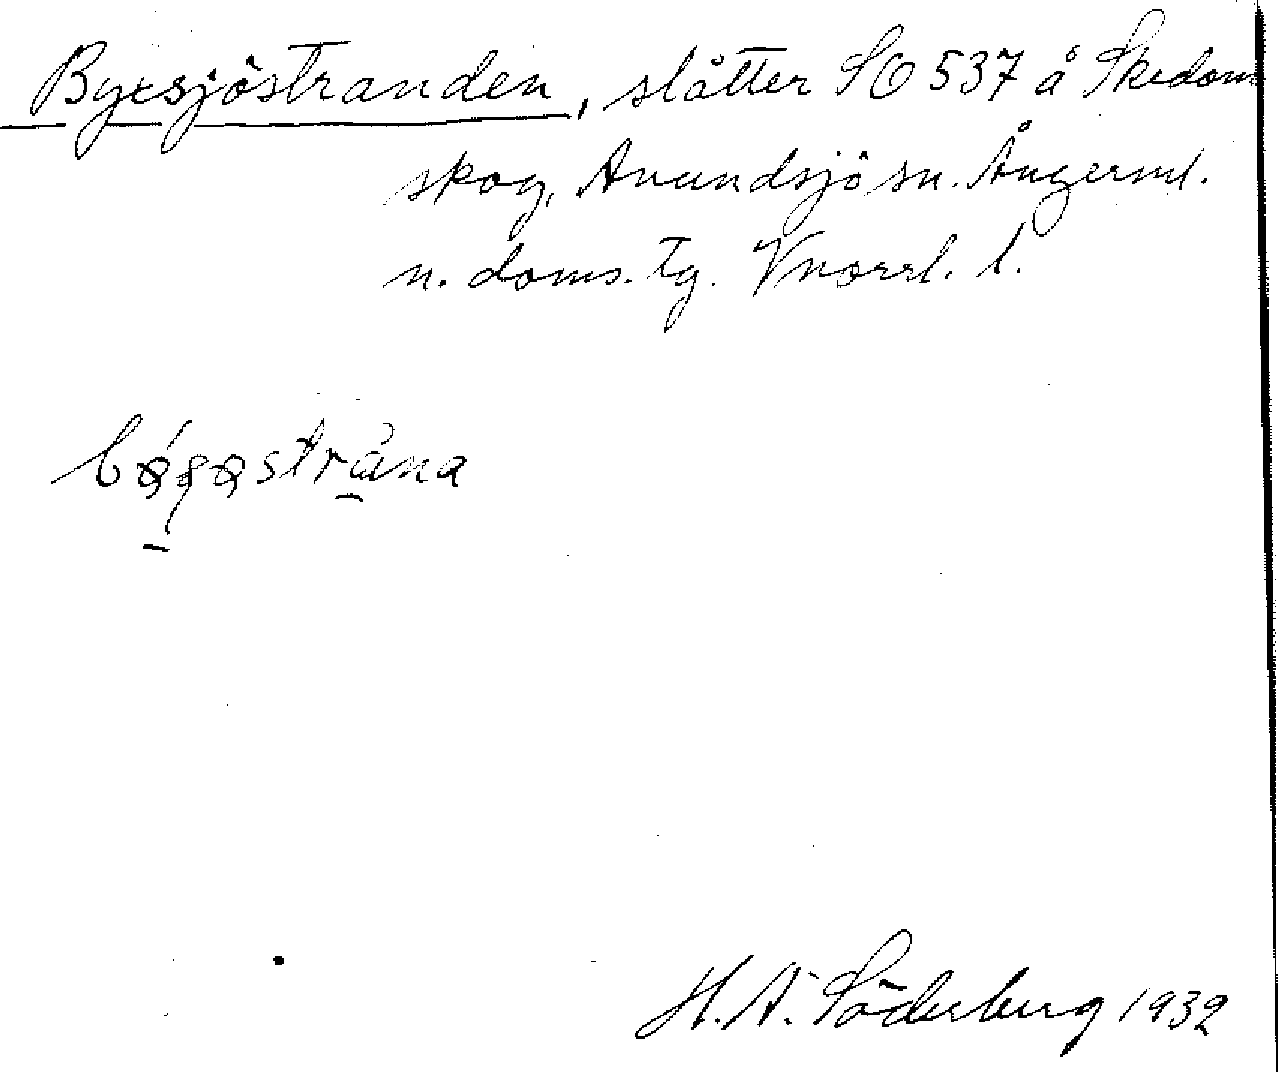 Byxsjöstranden, slåtter SO 537 å Skedom
skog, Anundsjö sn. Ångerml.
n. doms. tg. Vnorrl. l.
H. A. Söderberg 1932